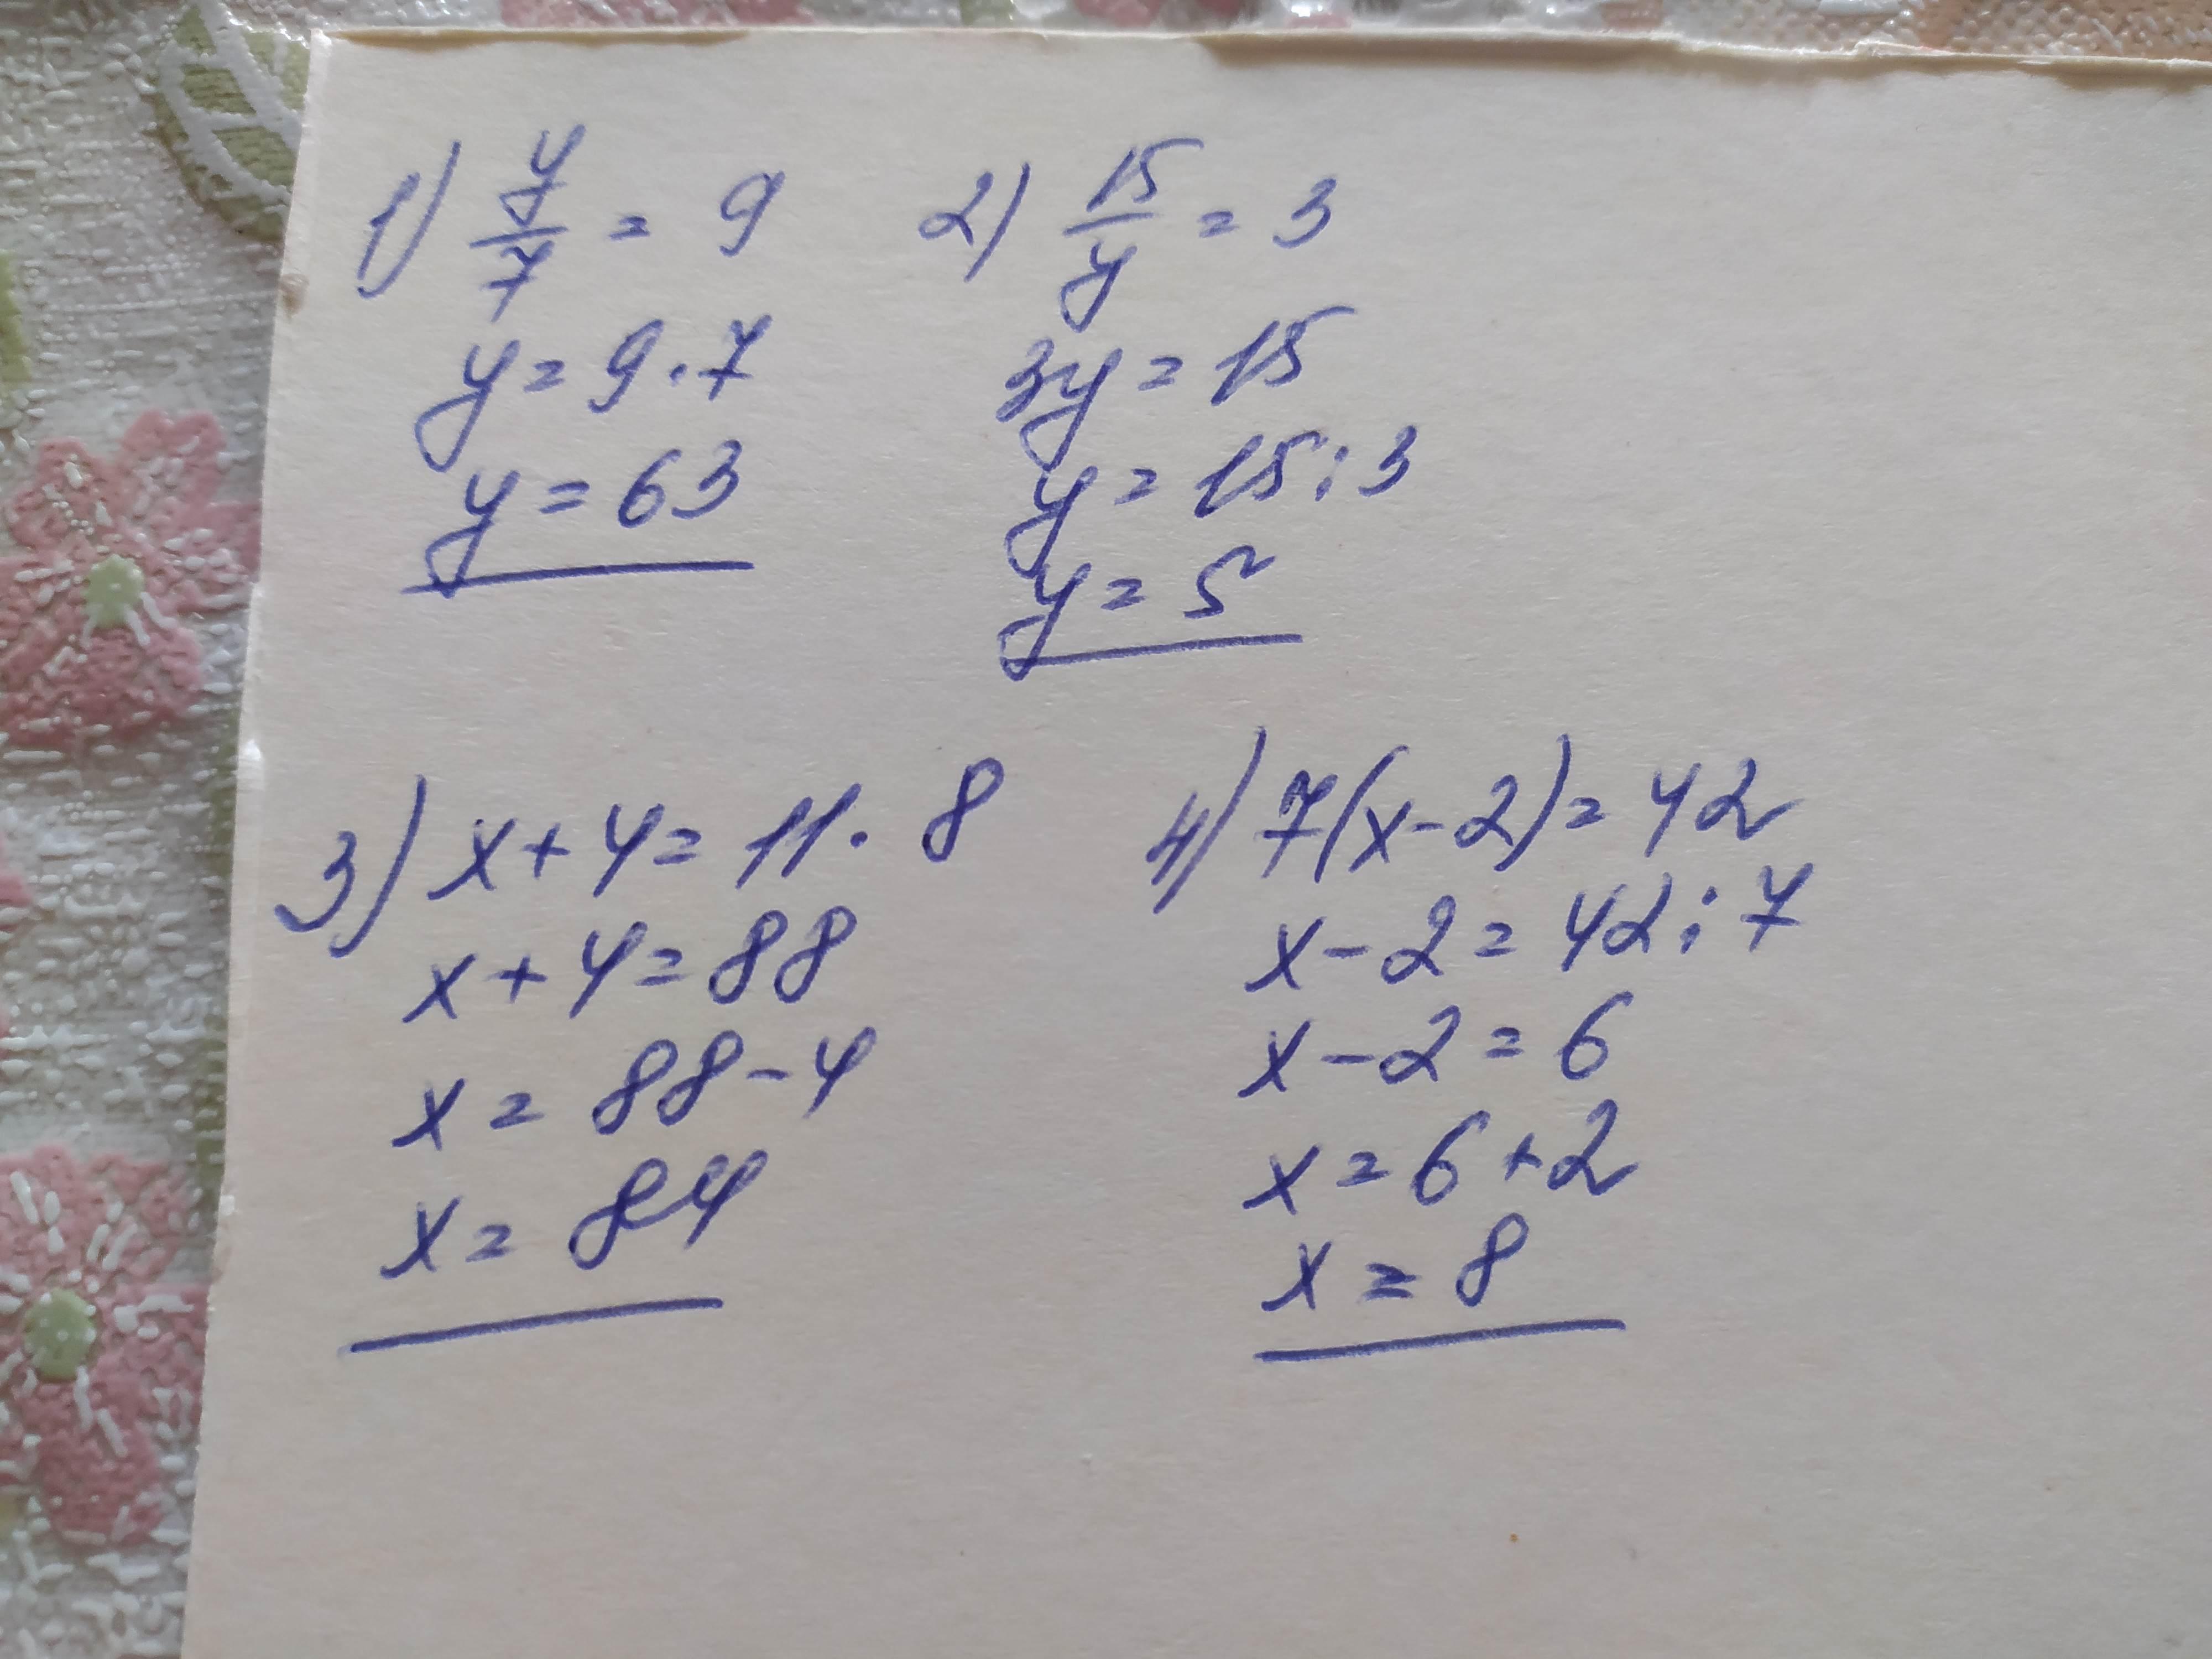 1) y/7 = 9
y = 9 · 7
y = 63
2) 15/y = 3
3y = 15
y = 15 : 3
y = 5
3) x + 4 = 11 · 8
x + 4 = 88
x = 88 - 4
x = 84
4) 7(x - 2) = 42
x - 2 = 42 : 7
x - 2 = 6
x = 6 + 2
x = 8